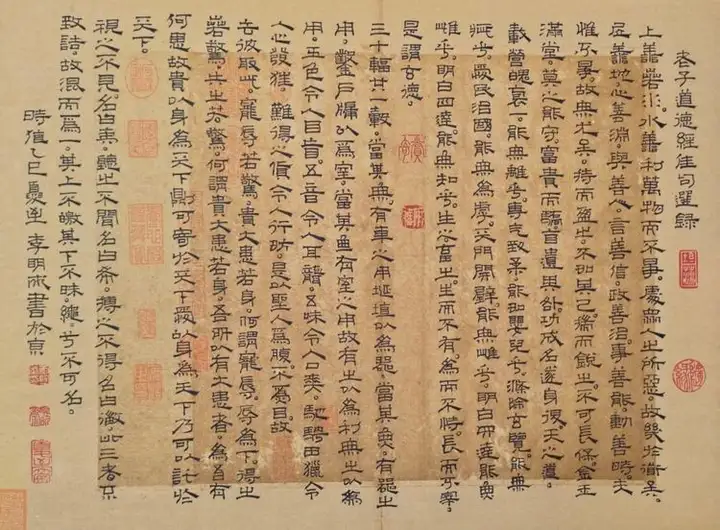 老子道德經佳句選錄
上善若水。水善利萬物而不爭。處衆人之所惡。故幾於道矣。
居善地。心善淵。與善人。言善信。政善治。事善能。動善時。夫
惟不爭。故無尤矣。持而盈之。不如其已。而銳之。不可長保。金玉
滿堂。莫之能守。富貴而驕自遺其咎。功成名遂身退天之道。
載營魄一。能無離乎。專气致柔。能如嬰兒乎。滌除玄覽。能無
疵乎。愛民治國。能無為虖。天門開闢。能無雌乎。明白四達能無
雌乎。明白四達。能無知乎。生之畜之。生而不有。為而不恃。長而不宰。
是謂玄德。
三十輻共一轂。當其無。有車之用埏埴以為器。當其無。有器之
用。鑿戶牖以為室。當其無有室之用故有之以為利無之以為
用。五色令人目盲。五音令人耳聾。五味令人口爽。馳騁田獵令
人心發狂。難得之貨令人行妨。是以聖人為腹。不為目。故
去彼取此。寵辱若驚。貴大患若身。何謂寵辱。辱為下。得之
若驚。失之若驚。何謂貴大患若身。吾所以有大患者。為吾有
何患故貴以身為天下則可寄於天下愛以身為天下乃可以託於
天下。
視之不見。名曰夷。聽之不聞名曰希。搏之不得名曰微。此三者不
致詰。故混而為一。其上不皦其下不昧。繩乎不可名。
時值乙巳夏 李明書於京